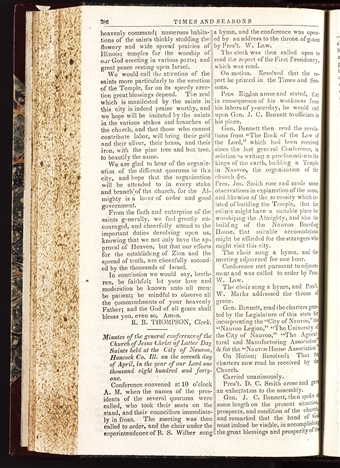 386 TIMES AND SEASONS
heavenly command; numerous habita-
tions of the saints thickly studding the
flowery and wide spread prairies of
Illinois; temples for the worship of
our God erecting in various parts; and
great peace resting upon Israel.
We would call the attention of the
saints more particularly to the erection
of the Temple, for on its speedy erec-
tion great blessings depend. The zeal
which is manifested by the saints in
this city is indeed praise worthy, and
we hope will be imitated by the saints
in the various stakes and branches of
the church, and that those who cannot
contribute labor, will bring their gold
and their silver, their brass, and their
iron, with the pine tree and box tree,
to beautify the same.
We are glad to hear of the organiz-
ation of the different quorums in this
city, and hope that the organization
will be attended to in every stake
and branch of the church, for the Al-
mighty is a lover of order and good
government.
From the faith and enterprise of the
saints generally, we feel greatly en-
couraged, and cheerfully attend to the
important duties devolving upon us,
knowing that we not only have the ap-
proval of Heaven, but our efforts
for the establishing of Zion and the
spread of truth, are cheerfully second-
ed by the thousands of Israel.
In conclusion we would say, breth-
ren, be faithful; let your love and
moderation be known unto all men;
be patient; be mindful to observe all
the commandments of your heavenly
Father; and the God of all grace shall
bless you, even so, Amen.
R. B. THOMPSON, Clerk.
Minutes of the general conference of the
Church of Jesus Christ of Latter Day
Saints held at the City of Nauvoo,
Hancock Co. Ill. on the seventh day
of April, in the year of our Lord one
thousand eight hundred and forty-
one.
Conference convened at 10 o'clock
A. M. when the names of the pres-
idents of the several quorums were
called, who took their seats on the
stand, and their councillors immediate-
ly in front. The meeting was then
called to order, and the choir under the
superintendence of B. S. Wilber sung
a hymn, and the conference was open-
ed by an address to the throne of grace
by Pres't. W. Law.
The clerk was then called upon to
read the report of the First Presidency,
which was read.
On motion. Resolved that the re-
port be printed in the Times and Sea-
sons.
Pres. Rigdon arose and stated, that
in consequence of his weakness from
his labors of yesterday, he would call
upon Gen. J. C. Bennett to officiate in
his place.
Gen. Bennett then read the revela-
tions from "The Book of the Law of
the Lord," which had been received
since the last general Conference, in
relation to writing a proclamation to the
kings of the earth, building a Temple
in Nauvoo, the organization of the
church &c.
Pres. Jos. Smith rose and made some
observations in explanation of the same,
and likewise of the necessity which ex-
isted of building the Temple, that the
saints might have a suitable place for
worshiping the Almighty, and also the
building of the Nauvoo Boarding
House, that suitable accommodations
might be afforded for the strangers who
might visit this city.
The choir sung a hymn, and the
meeting adjourned for one hour.
Conference met pursuant to adjourn-
ment and was called to order by Pres.
W. Law.
The choir sung a hymn, and Pres't
W. Marks addressed the throne of
grace.
Gen. Bennett, read the charters gran-
ted by the Legislature of this state for
incorporating the "City of Nauvoo," the
"Nauvoo Legion," "The University of
the City of Nauvoo," "The Agricul-
tural and Manufactoring Association"
& for the "Nauvoo House Association."
On Motion; Resolved; That the
charters now read be received by the
Church.
Carried unanimously.
Pres't. D. C. Smith arose and gave
an exhortation to the assembly.
Gen. J. C. Bennett, then spoke at
some length on the present situation,
prospects, and condition of the church,
and remarked that the hand of God
must indeed be visible, in accomplishing
the great blessings and prosperity of the